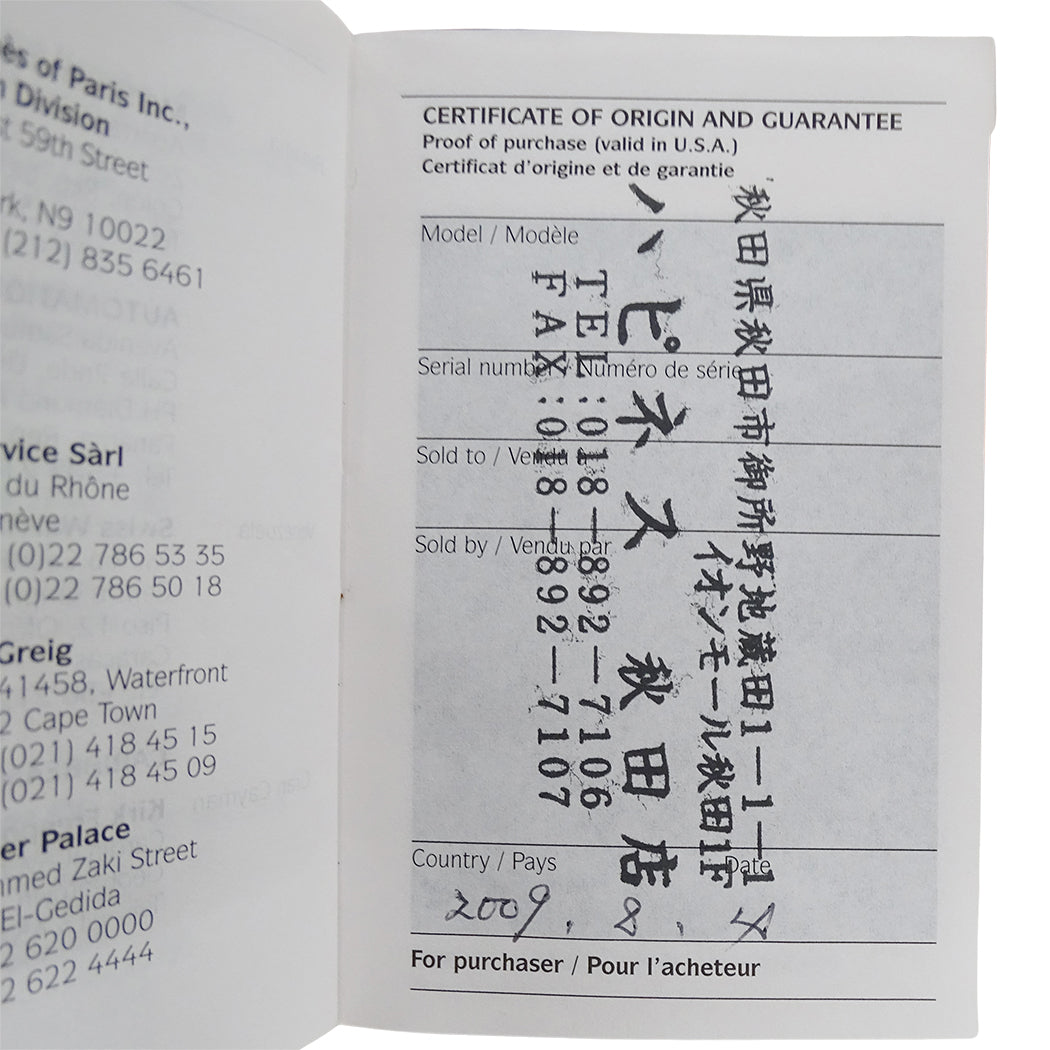 ès of Paris Inc.,
Division
59th Street
rk, N9 10022
(212) 835 6461
vice Sàrl
du Rhône
nève
(0)22 786 53 35
(0)22 786 50 18
Greig
41458, Waterfront
2 Cape Town
(021) 418 45 15
(021) 418 45 09
er Palace
med Zaki Street
El-Gedida
2 620 0000
2 622 4444
CERTIFICATE OF ORIGIN AND GUARANTEE
Proof of purchase (valid in U.S.A.)
Certificat d'origine et de garantie
Model / Modèle
Serial number / Numéro de série
Sold to / Vendu à
Sold by / Vendu par
秋田県秋田市御所野地蔵田1-1-1
イオンモール秋田1F
ハピネス 秋田店
TEL:018-892-7106
FAX:018-892-7107
Country / Pays
Date
2009. 8. 4
For purchaser / Pour l'acheteur